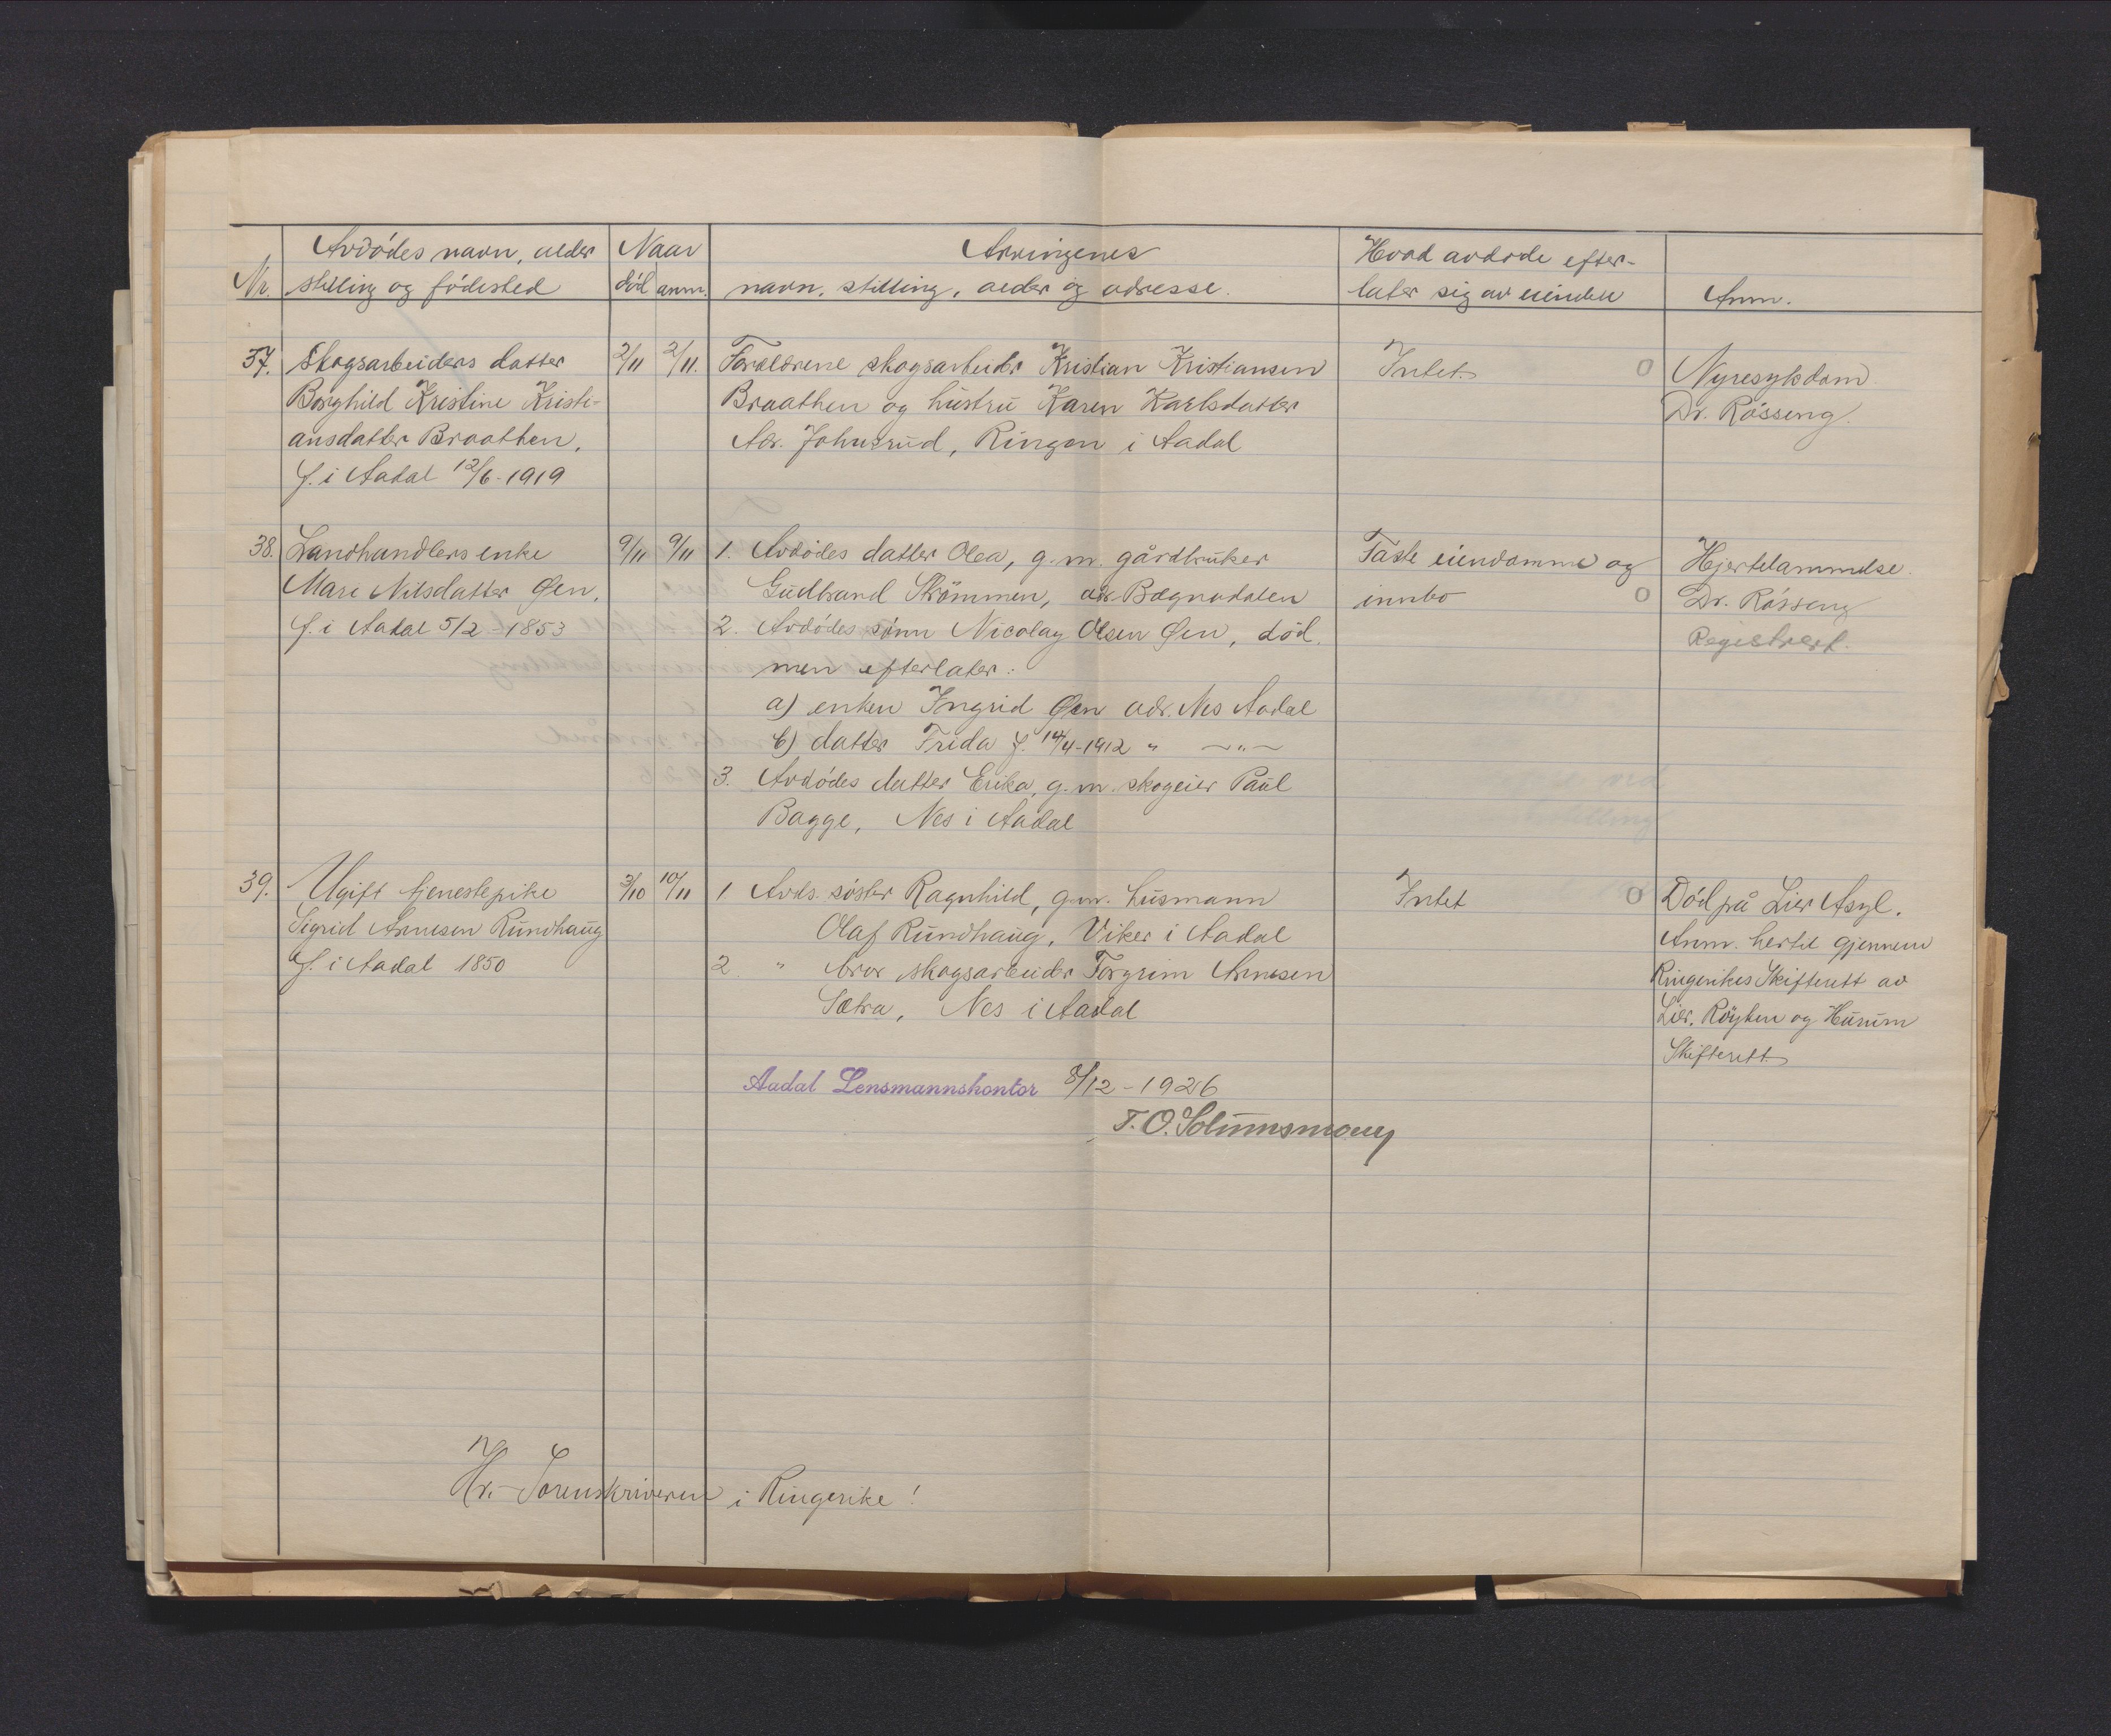 Nr.
Avdødes navn, alder
stilling og fødested
Naar
død anm.
Arvingenes
navn, stilling, alder og adresse.
Hvad avdøde efter-
later sig av eiendele
Anm.
37.
Skogsarbeiders datter
Borghild Kristine Kristi-
ansdatter Braathen,
f. i Aadal 12/6-1919
2/11 2/11.
Forældrene skogsarbeider Kristian Kristiansen
Braathen og hustru Karen Karlsdatter
Adr. Johnsrud, Ringen i Aadal
Intet. 0
Nyresykdom
Dr. Røsseng.
38.
Landhandlers enke
Mari Nilsdatter Øen,
f. i Aadal 5/2-1853
9/11 9/11
1. Avdødes datter Olea, g.m. gårdbruker
Gudbrand Strømmen, adr. Bægnadalen
2. Avdødes sønn Nicolay Olsen Øen, død.
men efterlater:
a) enken Ingrid Øen adr. Nes Aadal
b) datter Frida f. 14/4-1912 " —"—
3. Avdødes datter Erika, g.m. skogeier Paul
Bagge, Nes i Aadal
Faste eiendomme og
innbo 0
Hjertelammelse.
Dr. Røsseng
Registrert.
39.
Ugift tjenestepike
Sigrid Arnesen Rundhaug
f. i Aadal 1850
3/10 10/11
1 Avds. søster Ragnhild, g.m. husmann
Olaf Rundhaug, Viker i Aadal
2. " bror skogsarbeider Torgrim Arnesen
Sætra, Nes i Aadal
Intet 0
Død på Lier Asyl.
Anm. hertil gjennem
Ringerikes Skifterett av
Lier, Røyken og Hurum
Skifterett.
Aadal Lensmannskontor 8/12-1926
T. O. Solumsmoen
Hr. Sorenskriveren i Ringerike!